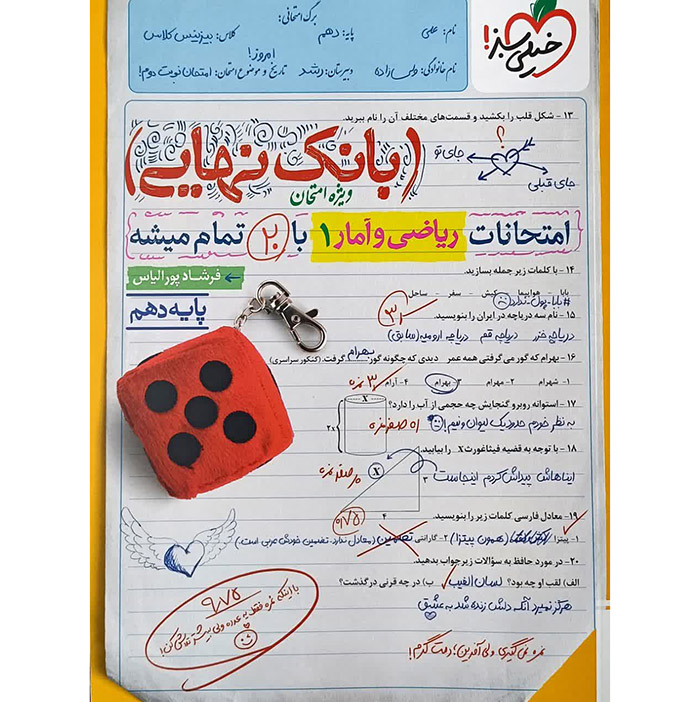 خیلی سبز!
برگ امتحانی:
نام: علی پایه: دهم کلاس: بیزینس کلاس
امروز!
نام خانوادگی: ولی زاده دبیرستان: رشد تاریخ و موضوع امتحان: امتحان نوبت دوم!
۱۳ - شکل قلب را بکشید و قسمت‌های مختلف آن را نام ببرید.
؟
جای تو
جای قبلی
(بانک نهایی)
ویژه امتحان
امتحانات ریاضی و آمار ۱ با ۲۰ تمام میشه
فرشاد پورالیاس
پایه دهم
۱۴ - با کلمات زیر جمله بسازید.
بابا - هواپیما - کیش - سفر - ساحل
#بابا_پول_ندارد
۱۵ - نام سه دریاچه در ایران را بنویسید.
دریاچه خزر دریاچه قم دریاچه ارومیه (سابق)
۱۶ - بهرام که گور می گرفتی همه عمر دیدی که چگونه گور بهرام گرفت. (کنکور سراسری)
۱- شهرام ۲- مهرام ۳- بهرام ۴- آرام
۳ نمره
۱۷ - استوانه روبرو گنجایش چه حجمی از آب را دارد؟
X
2x
به نظر خودم حدود یک لیوان و نیم!
۱۸ - با توجه به قضیه فیثاغورث X را بیابید.
X
۳
۴
ایناهاش پیداش کردم اینجاست
صفر نمره
۰/۷۵
۱۹- معادل فارسی کلمات زیر را بنویسید.
۱- پیتزا (همون پیتزا) ۲- گارانتی تضمین (معادل ندارد. تضمین خودش عربی است.)
۲۰- در مورد حافظ به سؤالات زیر جواب بدهید.
الف) لقب او چه بود؟ لسان الغیب ب) در چه قرنی درگذشت؟
هرگز نمیرد آنکه دلش زنده شد به عشق
۹/۷۵
با اینکه نمره فقط یه عدده ولی بیشتر تلاش کن!
نمرو نمی‌گیری ولی آفرین؛ دمت گرم!